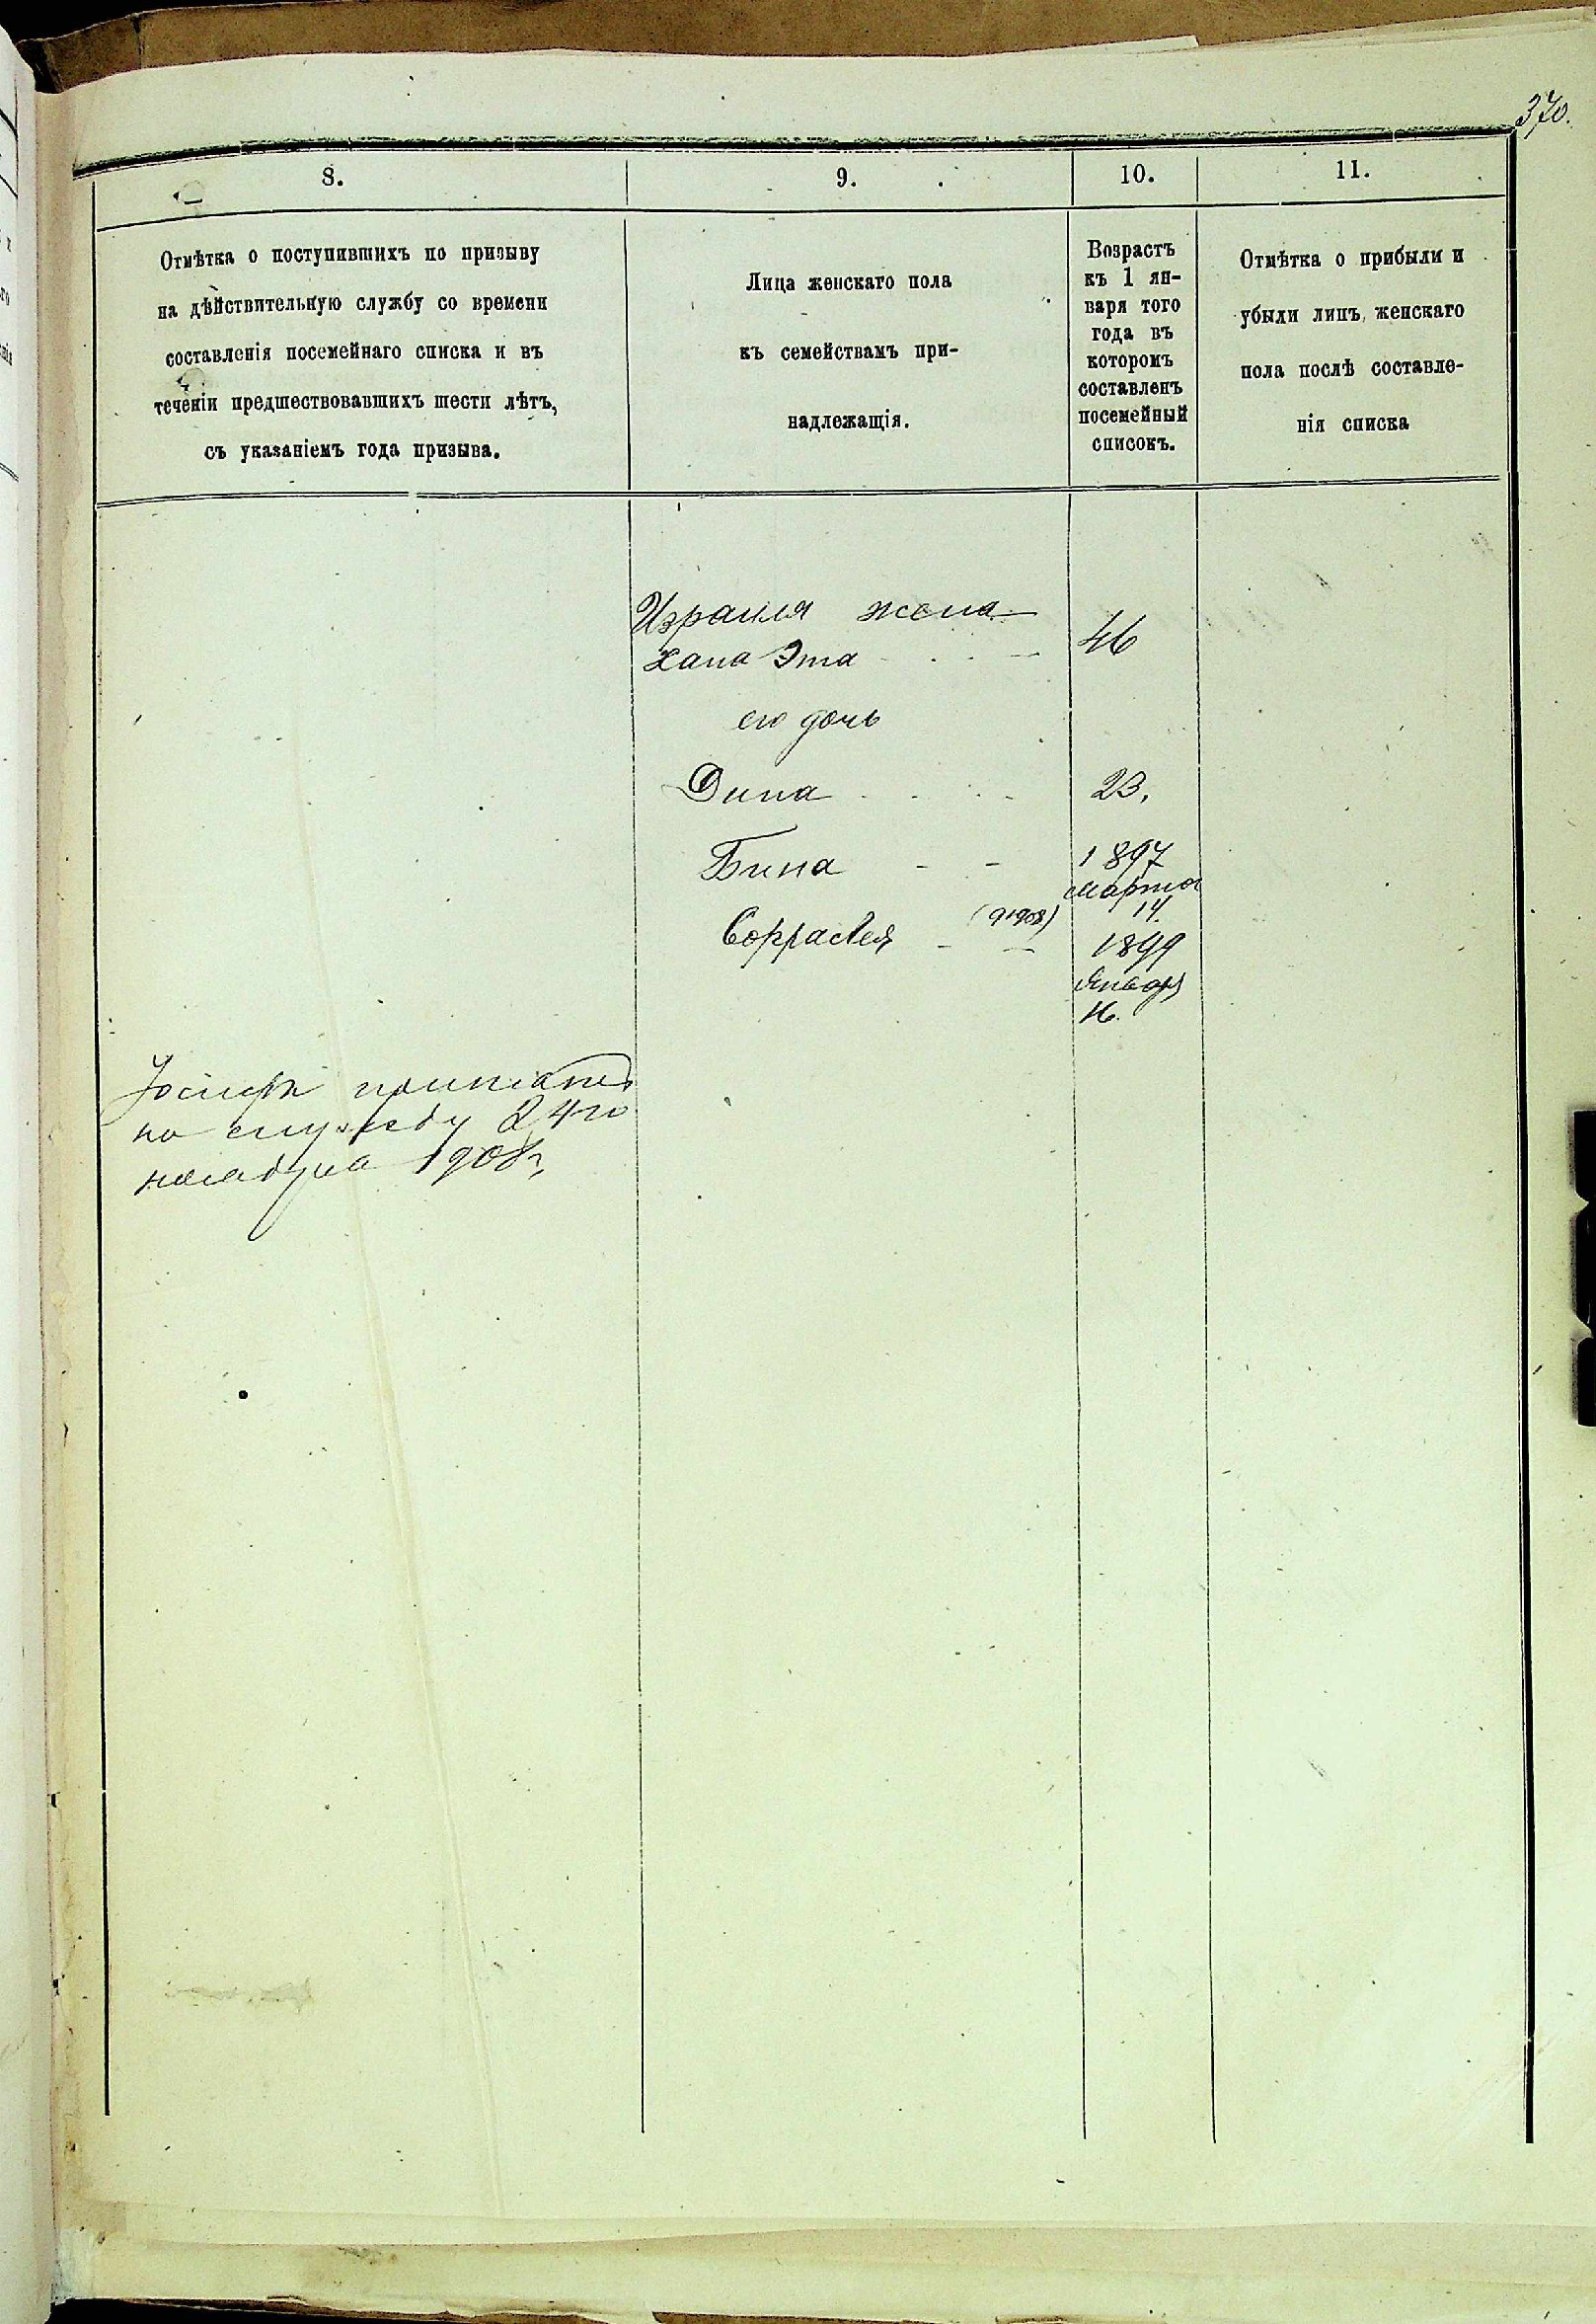 370.
8.
9.
10.
11.
Отмѣтка о поступившихъ по призыву
на дѣйствительную службу со времени
составленія посемейнаго списка и въ
теченіи предшествовавшихъ шести лѣтъ,
съ указаніемъ года призыва.
Лица женскаго пола
къ семействамъ при-
надлежащія.
Возрастъ
къ 1 ян-
варя того
года въ
которомъ
составленъ
посемейный
списокъ.
Отмѣтка о прибыли и
убыли лицъ женскаго
пола послѣ составле-
нія списка
Израиля жена
Хана Эта
46
его дочь
Дина
23.
Бина
1897
Марта
14.
1899
Января
16.
Іосифъ принятъ
на службу 24го
1908г.